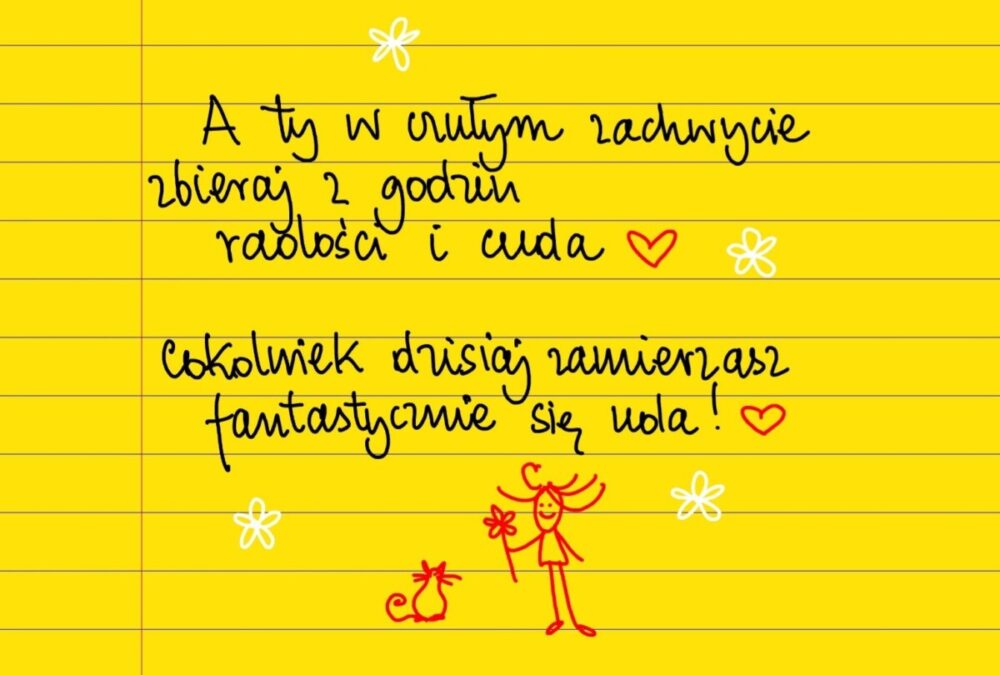 A ty w czułym zachwycie
zbieraj z godzin
radości i cuda
Cokolwiek dzisiaj zamierzasz
fantastycznie się uda!